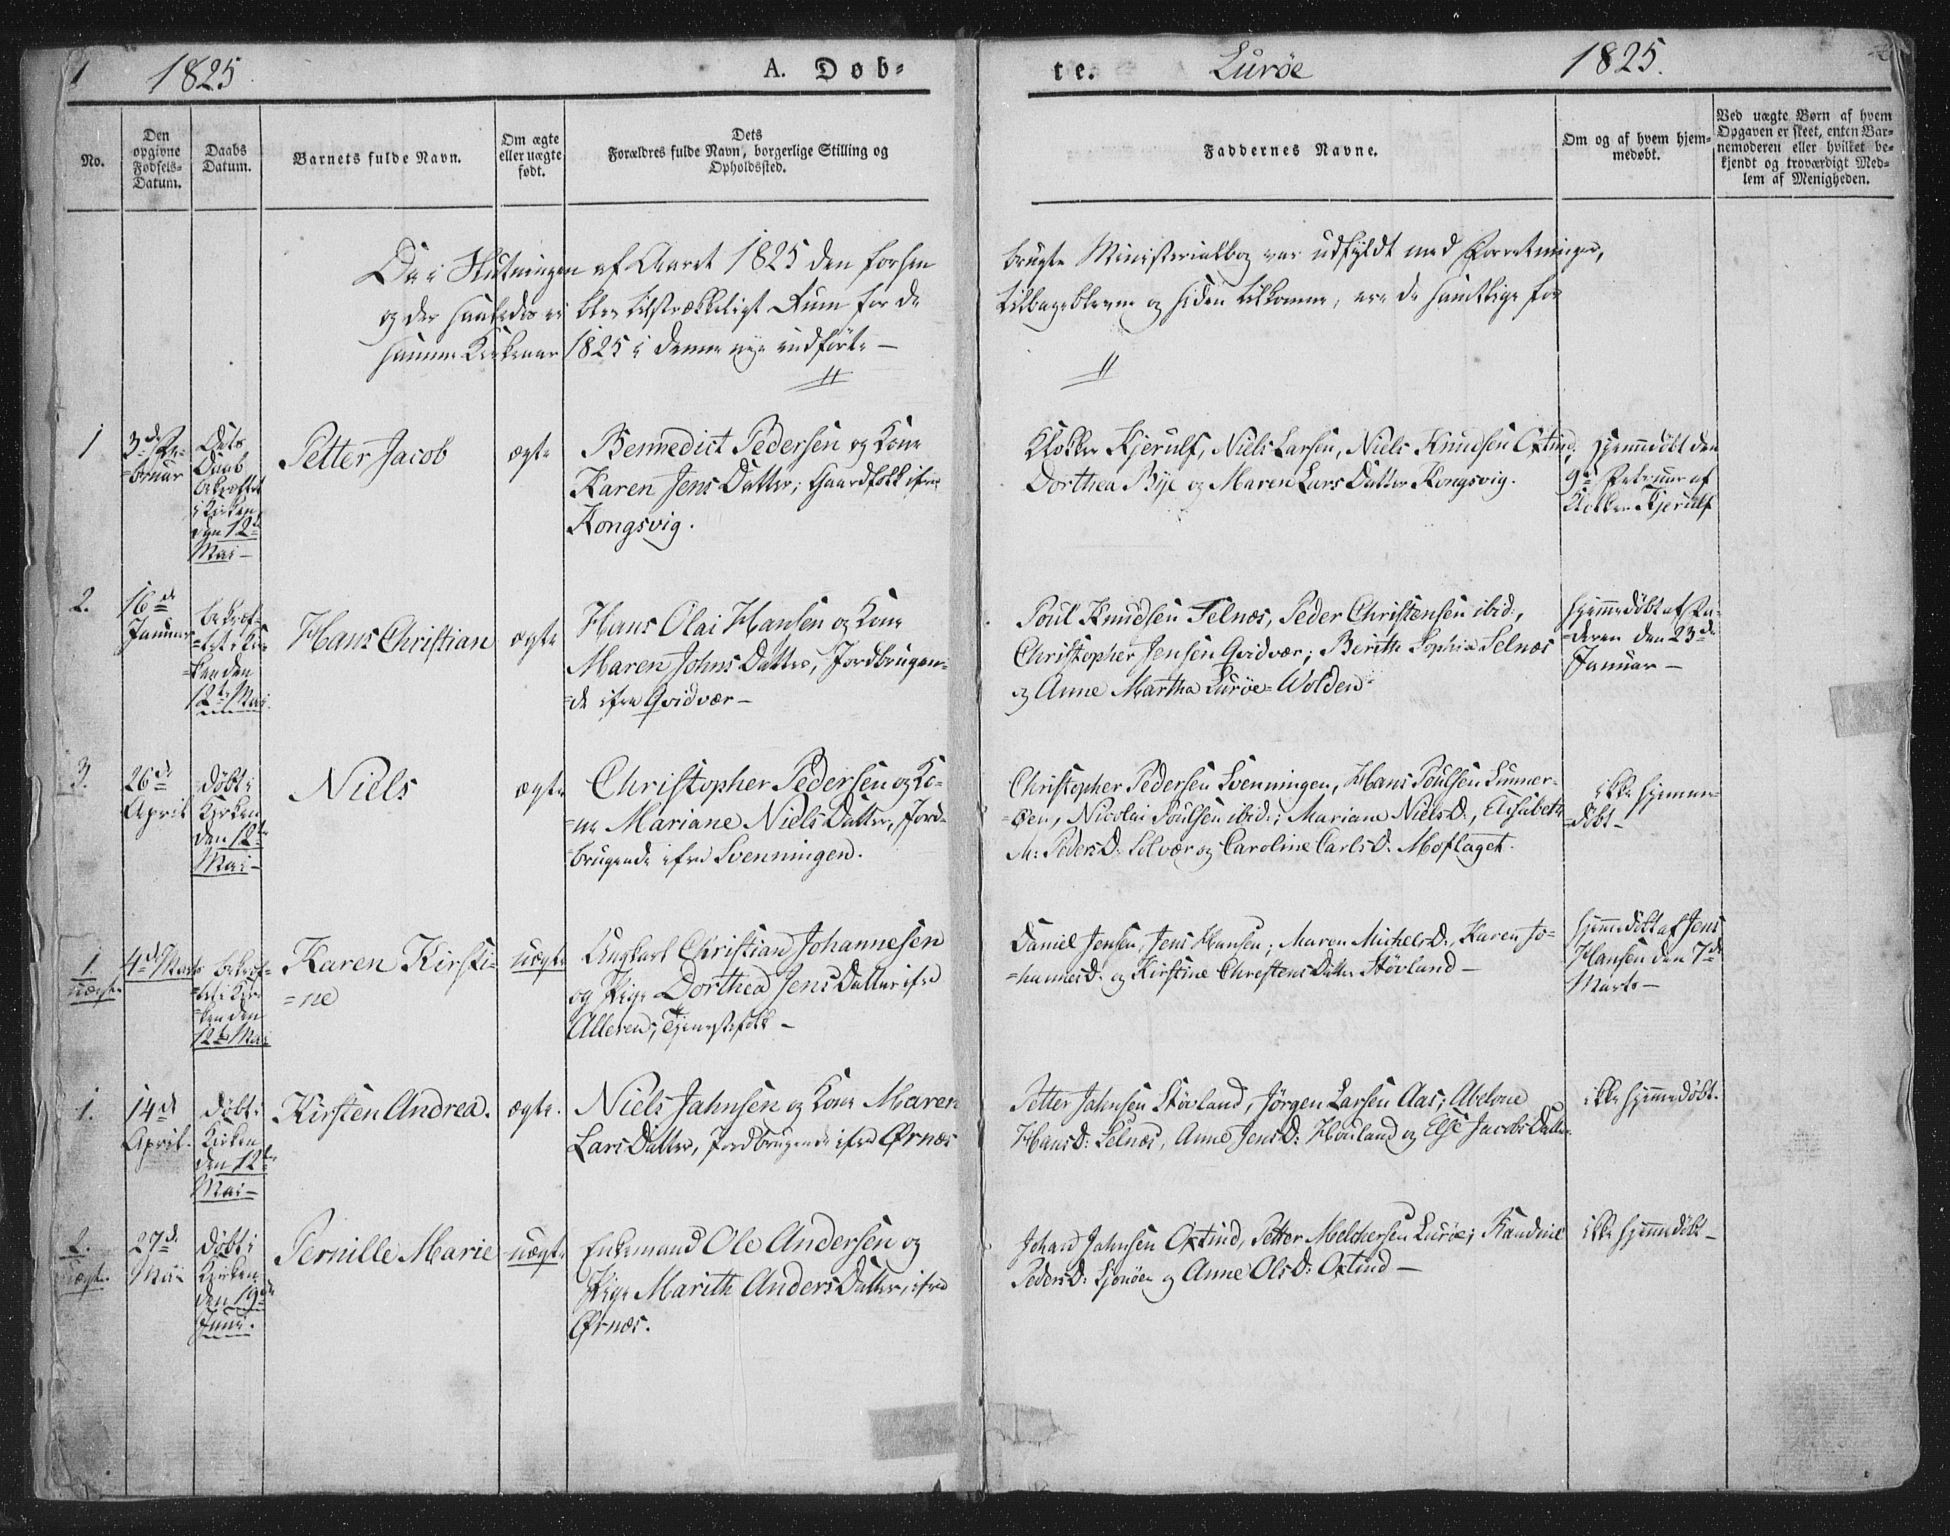 1
1825
A. Døb-
te.
Lurøe
1825.
No.
Den
opgivne
Fødsels-
Datum.
Daabs
Datum.
Barnets fulde Navn.
Om ægte
eller uægte
født.
Dets
Forældres fulde Navn, borgerlige Stilling og
Opholdssted.
Faddernes Navne.
Om og af hvem hjem-
medøbt.
Ved uægte Børn af hvem
Opgaven er skeet, enten Bar-
nemoderen eller hvilket be-
kjendt og troværdigt Med-
lem af Menigheden.
Da i Slutningen af Aaret 1825 den forhen
brugte Ministerialbog var udfyldt med Forretninger,
og der saaledes ei blev tilstrækkeligt Rum for de
tilbageblevne og siden tilkomne, ere de samtlige for
samme Kirkeaar 1825 i denne nye indførte —
1
3de Fe-
=bruar
Dets
Daab
bekræftet
i Kirken
den 12te
Mai —
Petter Jacob
ægte
Bennedict Pedersen og Kone
Karen Jens Datter; Gaardfolk ifra
Kongsvig.
Klokker Kjerulf, Niels Larsen, Niels Knudsen Oxtind,
Dorthea Bye og Maren Lars Datter Kongsvig.
hjemmedøbt den
9de Februar af
Klokker Kjerulf
2.
16de
Januar
bekræf-
=tet i Kir-
=ken den
12te Mai
Hans Christian
ægte
Hans Olai Hansen og Kone
Maren Johns Datter, Jordbrugen-
=de ifra Qvidvær —
Poul Knudsen Selnæs, Peder Christensen ibid:,
Christopher Jensen Qvidvær; Berithe Sophia Selnæs
og Anne Martha Lurøe=Wolden
hjemmedøbt af Fa-
=deren den 23de
Januar —
3.
26de
April
døbt i
Kirken
den 12te
Mai —
Niels
ægte
Christopher Pedersen og Ko-
=ne Mariane Niels Datter, Jord-
=brugende ifra Svenningen.
Christopher Pedersen Svenningen, Hans Poulsen
Nicolai Poulsen ibid:; Mariane Niels D., Elisabeth
M: Peders D: Selvær og Caroline Carls D. Moflaget.
ikke hjemme-
=døbt —
1
uægte
4de Marts
bekræf-
=tet i Kir-
=ken den
12te Mai
Karen Kirsti-
=ne
uægte
Ungkarl Christian Johannesen
og Pige Dorthea Jens Datter ifra
Alderen; Tjenestefolk —
Daniel Jensen, Jens Hansen; Maren Michels D., Karen Jo-
=hannes D. og Kirstine Christens Datter Støvland —
hjemmedøbt af Jens
Hansen den 7de
Marts —
1.
14de
April.
døbt i
Kirken
den 12te
Mai —
Kirsten Andrea.
ægte.
Niels Jahnsen og Kone Maren
Lars Datter, Jordbrugende ifra Ørnæs
Petter Jahnsen Støvland, Jørgen Larsen Aas; Abelone
Hans D: Selnæs, Anne Jens D: Houland og Else Jacobs Datter
ikke hjemmedøbt.
2.
uægte.
27de
Mai
døbt i
Kirken
den 19de
Juni.
Pernille Marie
uægte
Enkemand Ole Andersen og
Pige Marith Anders Datter, ifra
Ørnæs.
Johan Jahnsen Oxtind, Petter Melchersen Lurøe; Kandine
Peders D: Sjonøen og Anne Ols D: Oxtind —
ikke hjemmedøbt —